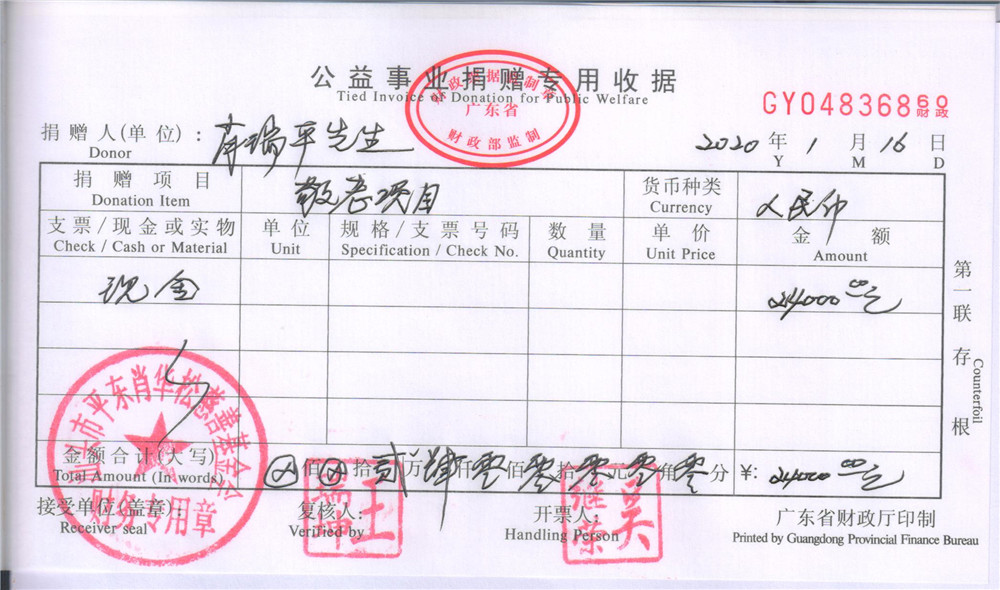 公益事业捐赠专用收据
Tied Invoice of Donation for Public Welfare
财政票据监制章
广东省
财政部监制
GY04836860
财政
捐赠人(单位): 肖瑞平先生
Donor
2020 年 1 月 16 日
Y M D
捐赠项目 敬老项目 货币种类 人民币
Donation Item Currency
支票/现金或实物 单位 规格/支票号码 数量 单价 金额
Check / Cash or Material Unit Specification / Check No. Quantity Unit Price Amount
现金 24000.00元
第一联 存根
Counterfoil
金额合计(大写) 佰 拾贰万肆仟零佰零拾零元零角零分 ¥: 24000.00元
Total Amount (In words)
接受单位(盖章): 复核人: 开票人: 广东省财政厅印制
Receiver seal Verified by Handling Person Printed by Guangdong Provincial Finance Bureau
汕头市平东肖华松慈善基金会
财务专用章
王瑞坤
吴继荣